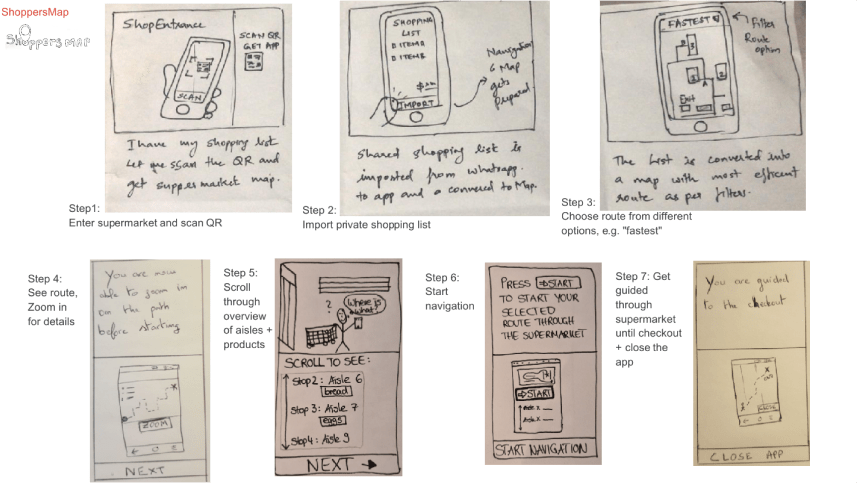 ShoppersMap
Shoppers MAP
ShopEntrance
SCAN QR
GET APP
SCAN
I have my shopping list
Let me scan the QR and
get supper market map.
Step1:
Enter supermarket and scan QR
SHOPPING
LIST
ITEMA
ITEMB
IMPORT
Navigation
& Map
gets
prepared
Shared shopping list is
imported from whatsapp.
to app and a convered to Map.
Step 2:
Import private shopping list
FASTEST
Filter
Route
option
A
Exit
The List is converted into
a map with most efficent
route as per filters.
Step 3:
Choose route from different
options, e.g. "fastest"
Step 4:
See route,
Zoom in
for details
You are now
able to zoom in
on the path
before starting
ZOOM
NEXT
Step 5:
Scroll
through
overview
of aisles +
products
?
Where is
what?
SCROLL TO SEE:
Stop 2: Aisle 6
bread
Stop 3: Aisle 7
eggs
Stop 4: Aisle 9
NEXT →
Step 6:
Start
navigation
PRESS ⇒START
TO START YOUR
SELECTED
ROUTE THROUGH
THE SUPERMARKET
⇒START
Aisle x
Aisle x
START NAVIGATION
Step 7: Get
guided
through
supermarket
until checkout
+ close the
app
You are guided
to the checkout
CLOSE APP